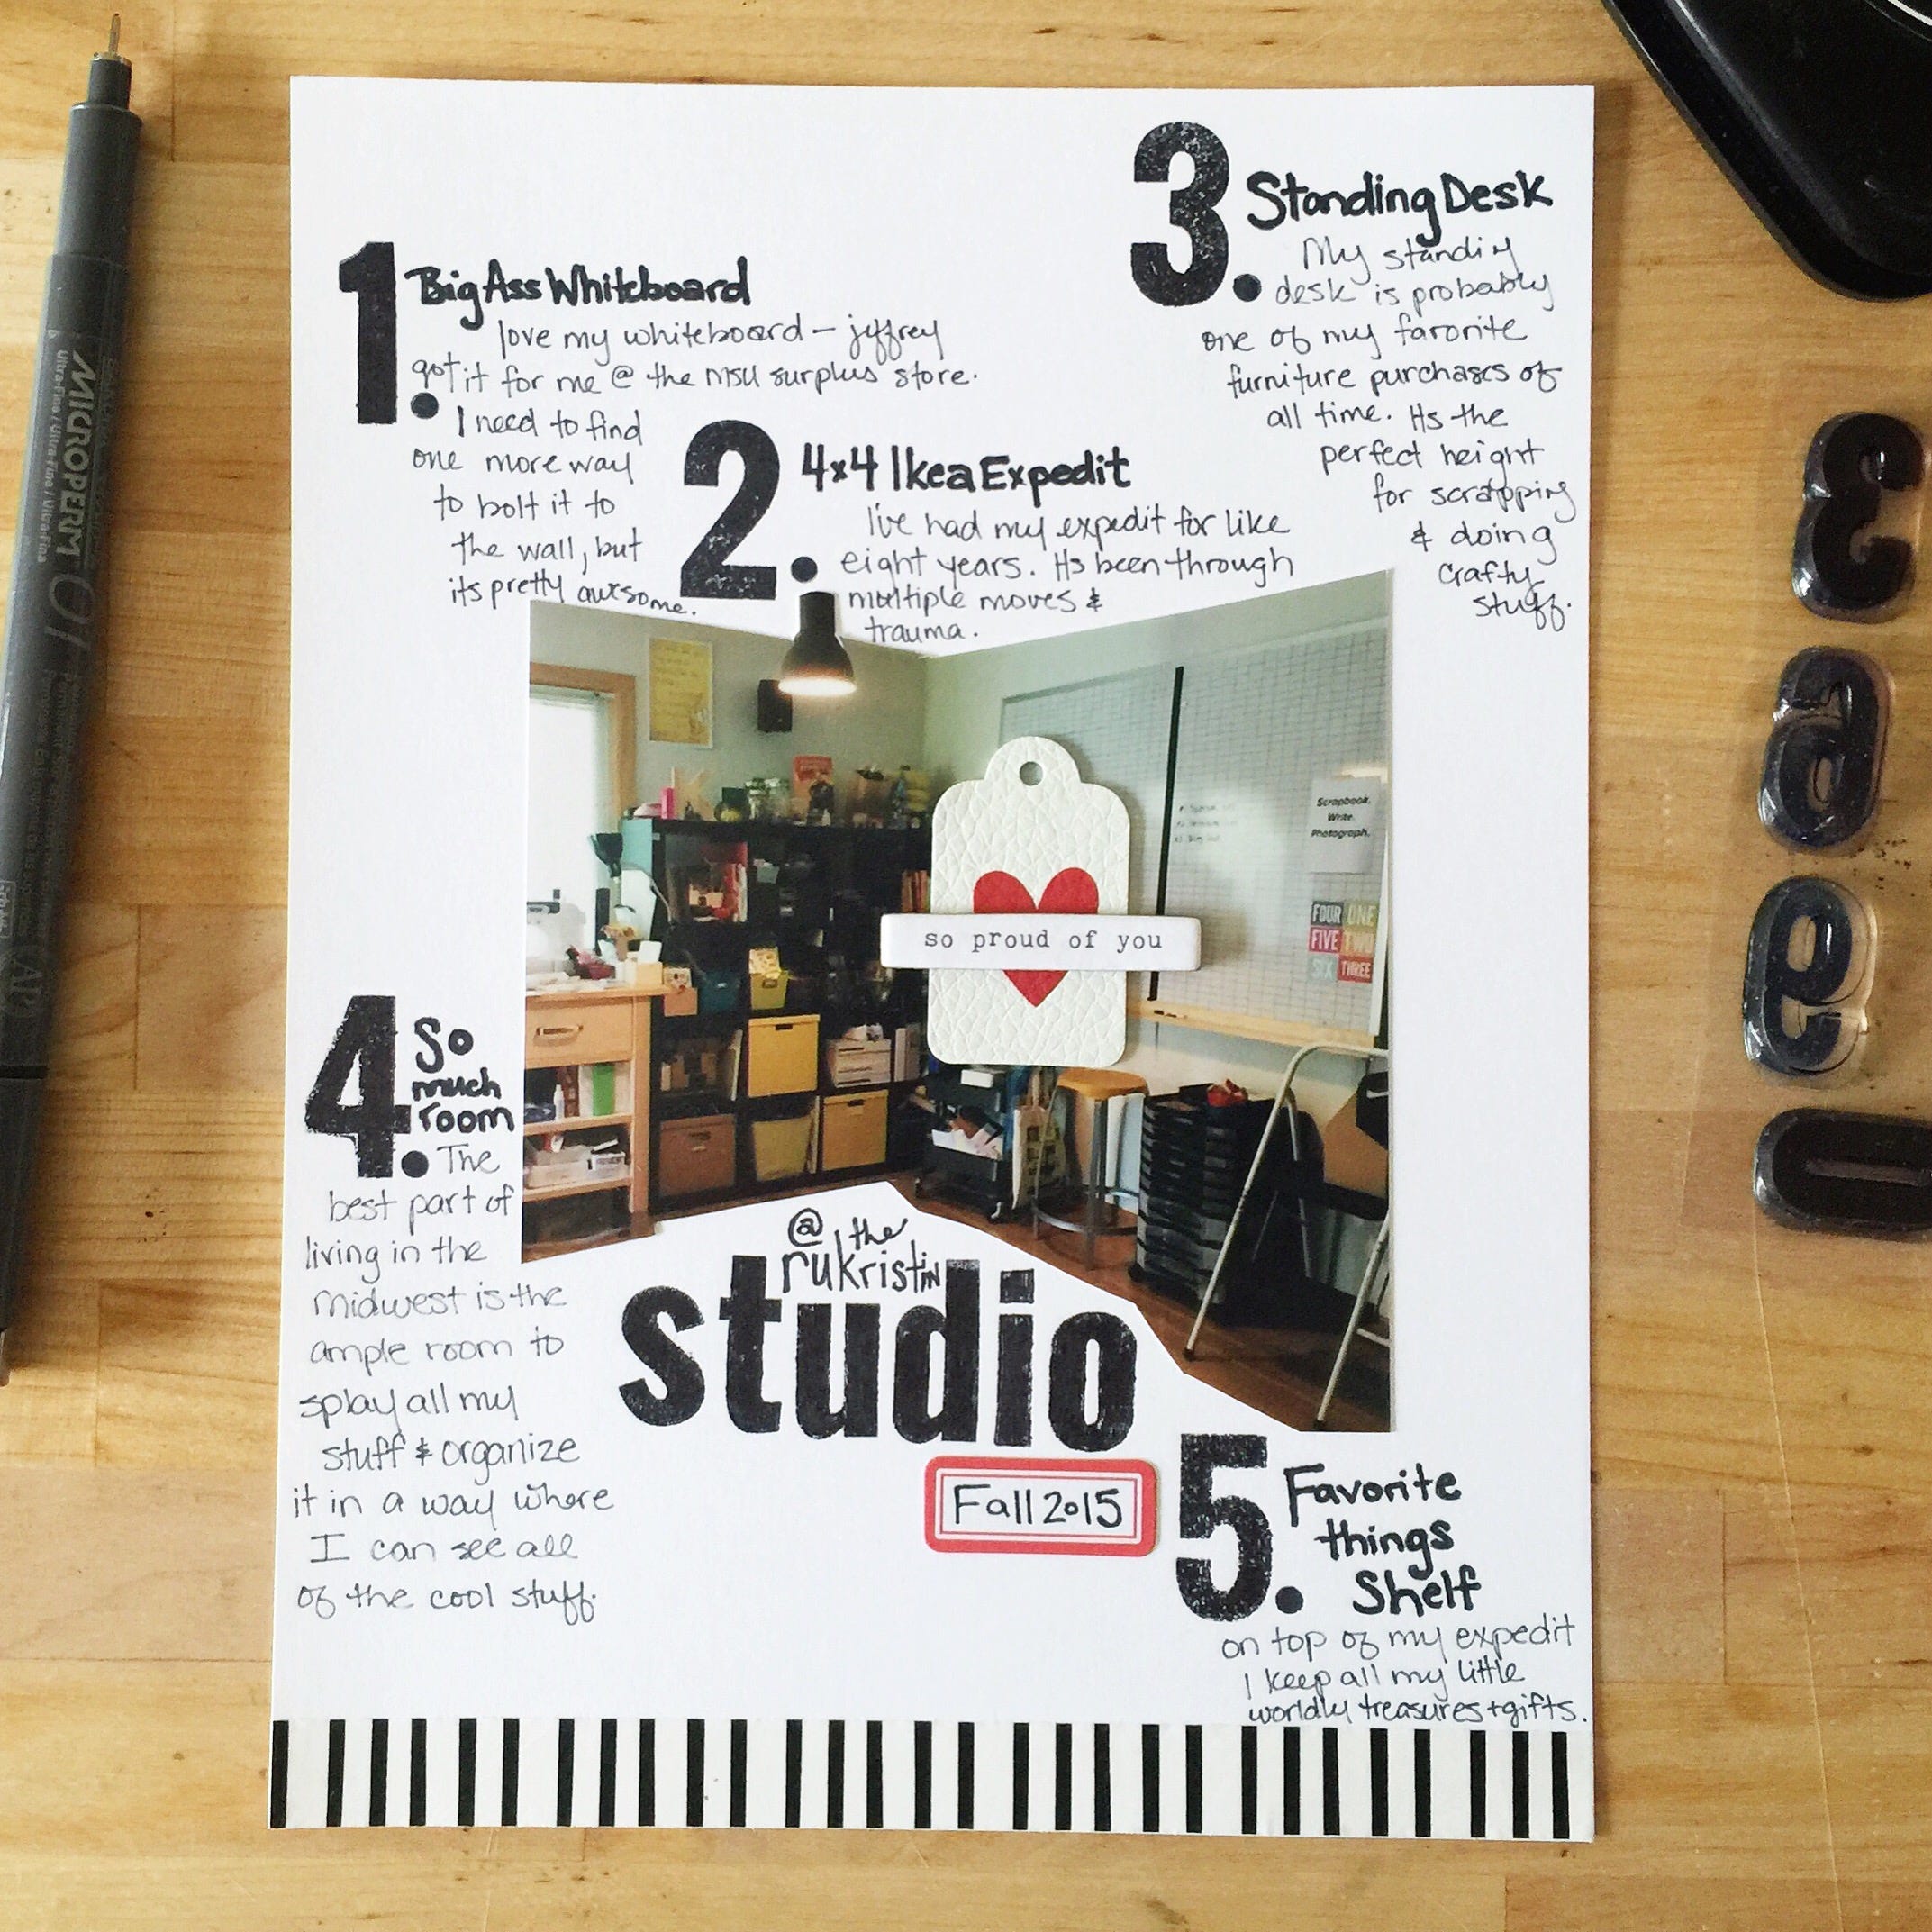 1.
Big Ass Whiteboard
love my whiteboard — jeffrey
got it for me @ the MSU surplus store.
I need to find
one more way
to bolt it to
the wall, but
its pretty awesome.
2.
4x4 Ikea Expedit
I've had my expedit for like
eight years. Its been through
multiple moves &
trauma.
3.
Standing Desk
My standing
desk is probably
one of my favorite
furniture purchases of
all time. Its the
perfect height
for scrapping
& doing
crafty
stuff.
Scrapbook.
Write.
Photograph.
FOUR ONE
FIVE TWO
SIX THREE
so proud of you
4.
So
much
room
The
best part of
living in the
midwest is the
ample room to
splay all my
stuff & organize
it in a way where
I can see all
of the cool stuff.
@ the
rukristin
studio
Fall 2015
5.
Favorite
things
Shelf
on top of my expedit
I keep all my little
worldly treasures + gifts.
MICROPERM 07
Ultra-Fine / Ultra-Fina / Ultra-Fina
AP
3
6
9
0